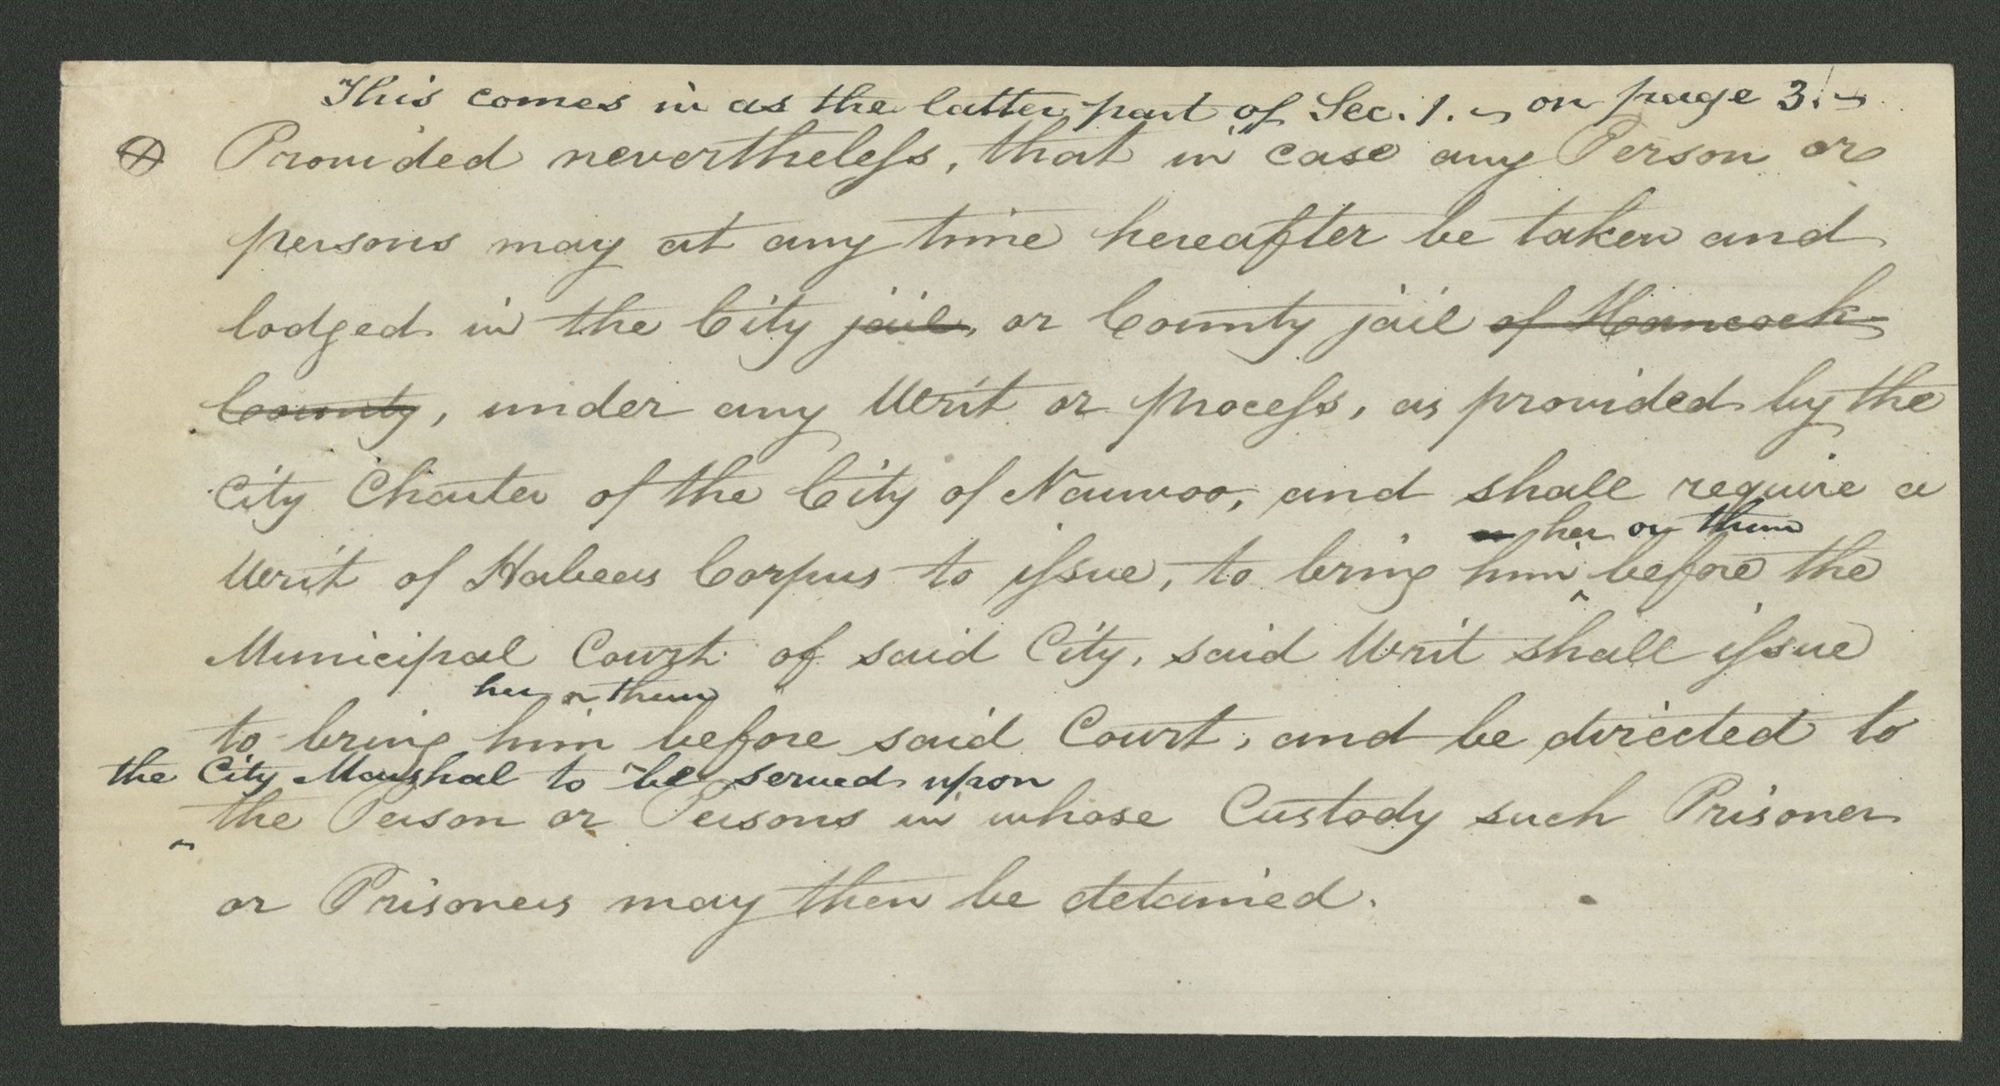 This comes in as the latter part of Sec. 1. on page 3.
Provided nevertheleſs, that in case any Person or
persons may at any time hereafter be taken and
lodged in the City jail, or County jail of Hancock
County, under any Writ or proceſs, as provided by the
City Charter of the City of Nauvoo, and shall require a
her or them
Writ of Habeas Corpus to iſsue, to bring him ‸ before the
Municipal Court of said City, said Writ shall iſsue
her or them
to bring him ‸ before said Court, and be directed to
the City Marshal to be served upon
‸ the Person or Persons in whose Custody such Prisoner
or Prisoners may then be detained.